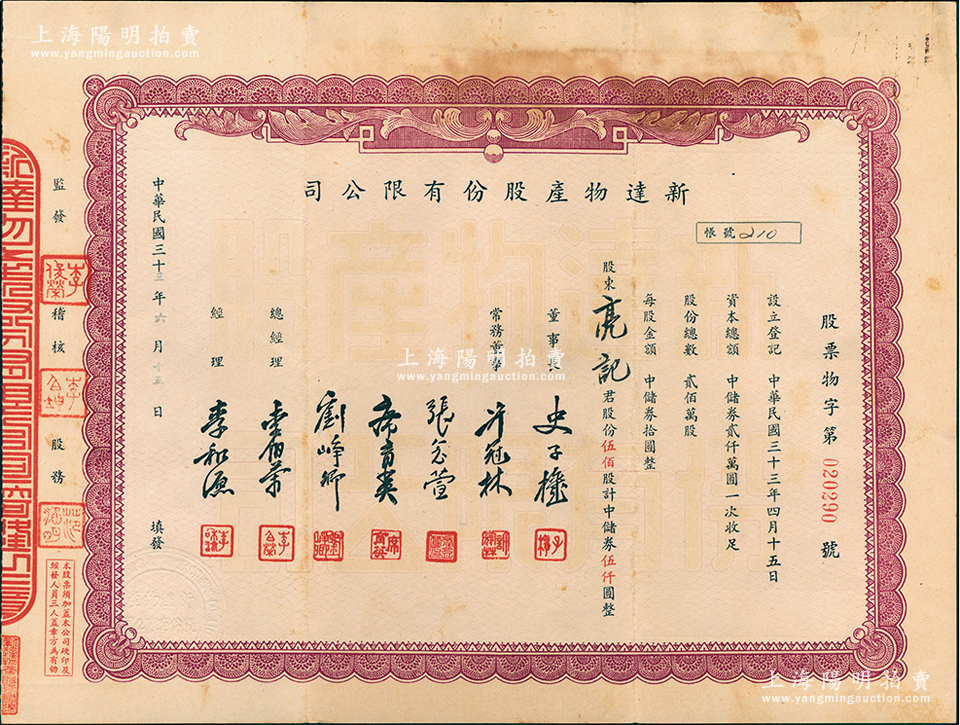 上海陽明拍賣
www.yangmingauction.com
上海陽明拍賣
www.yangmingauction.com
新達物產股份有限公司
帳號 210
股票物字第 020290 號
設立登記 中華民國三十三年四月十五日
資本總額 中儲券貳仟萬圓一次收足
股份總數 貳佰萬股
每股金額 中儲券拾圓整
股東 亮記 君股份伍佰股計中儲券伍仟圓整
董事長 史
常務董事 冠林
張
席育英
劉崢
總經理
經理 李和源
中華民國三十三年六月十五日 填發
監發 稽核 股務
李俊榮
本股票須加蓋本公司硬印及
經發人員三人蓋章方為有効
上海陽明拍賣
www.yangmingauction.com
上海陽明拍賣
www.yangmingauction.com
上海陽明拍賣
www.yangmingauction.com